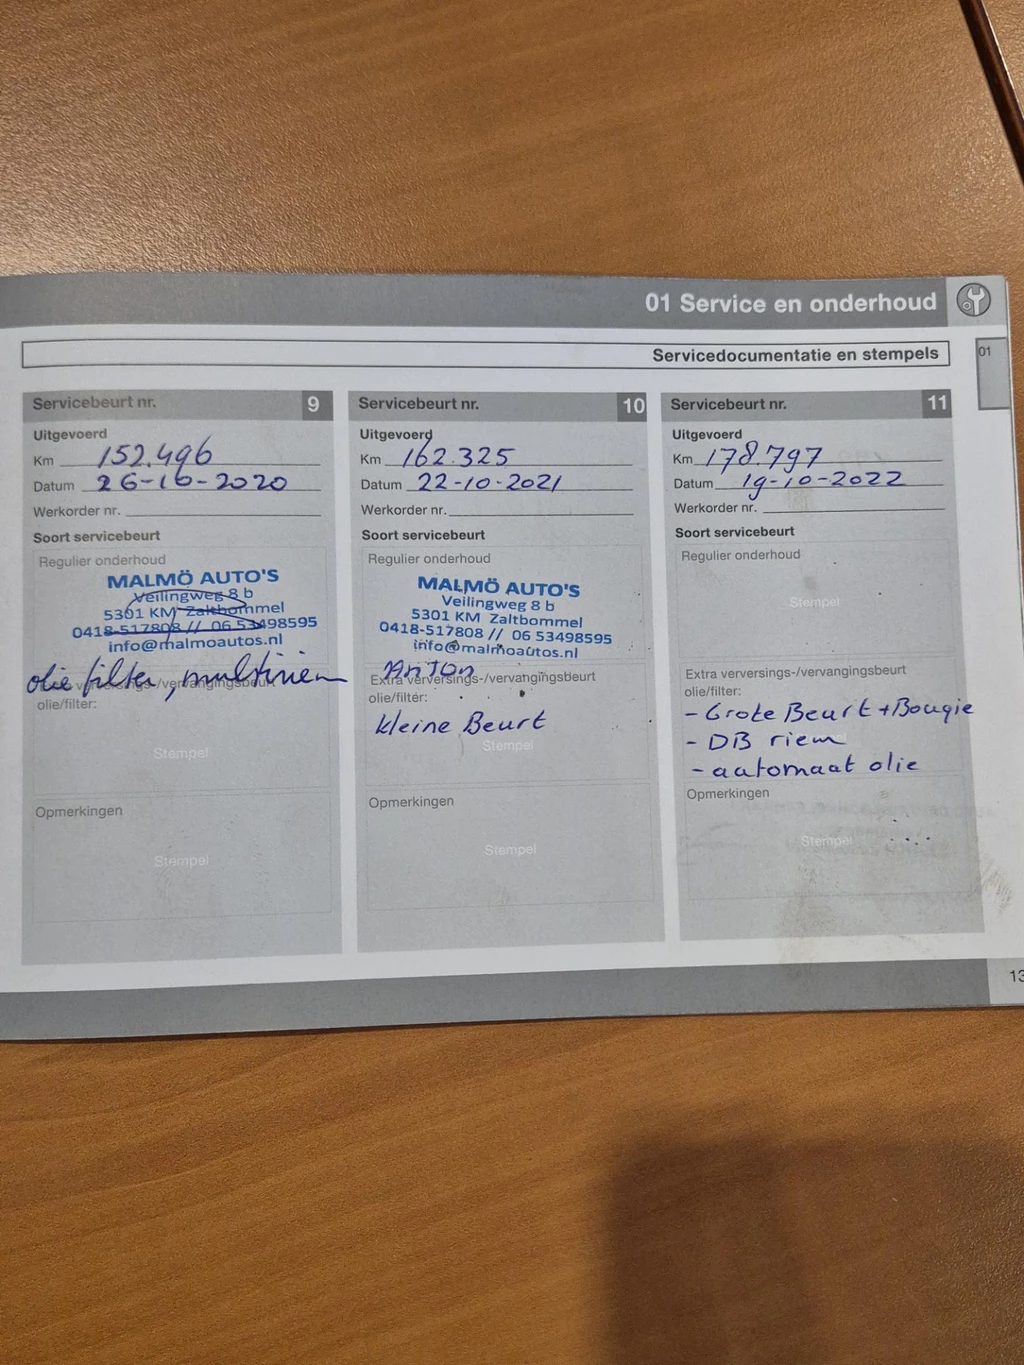 01 Service en onderhoud
Servicedocumentatie en stempels
01
Servicebeurt nr. 9
Uitgevoerd
Km 152.496
Datum 26-10-2020
Werkorder nr.
Soort servicebeurt
Regulier onderhoud
MALMÖ AUTO'S
Veilingweg 8 b
5301 KM Zaltbommel
0418-517808 // 06 53498595
info@malmoautos.nl
olie filter, multiriem
olie/filter:
Stempel
Opmerkingen
Stempel
Servicebeurt nr. 10
Uitgevoerd
Km 162.325
Datum 22-10-2021
Werkorder nr.
Soort servicebeurt
Regulier onderhoud
MALMÖ AUTO'S
Veilingweg 8 b
5301 KM Zaltbommel
0418-517808 // 06 53498595
info@malmoautos.nl
Anton
Extra verversings-/vervangingsbeurt
olie/filter:
kleine Beurt
Stempel
Opmerkingen
Stempel
Servicebeurt nr. 11
Uitgevoerd
Km 178.797
Datum 19-10-2022
Werkorder nr.
Soort servicebeurt
Regulier onderhoud
Stempel
Extra verversings-/vervangingsbeurt
olie/filter:
- Grote Beurt + Bougie
- DB riem
- automaat olie
Opmerkingen
Stempel
13